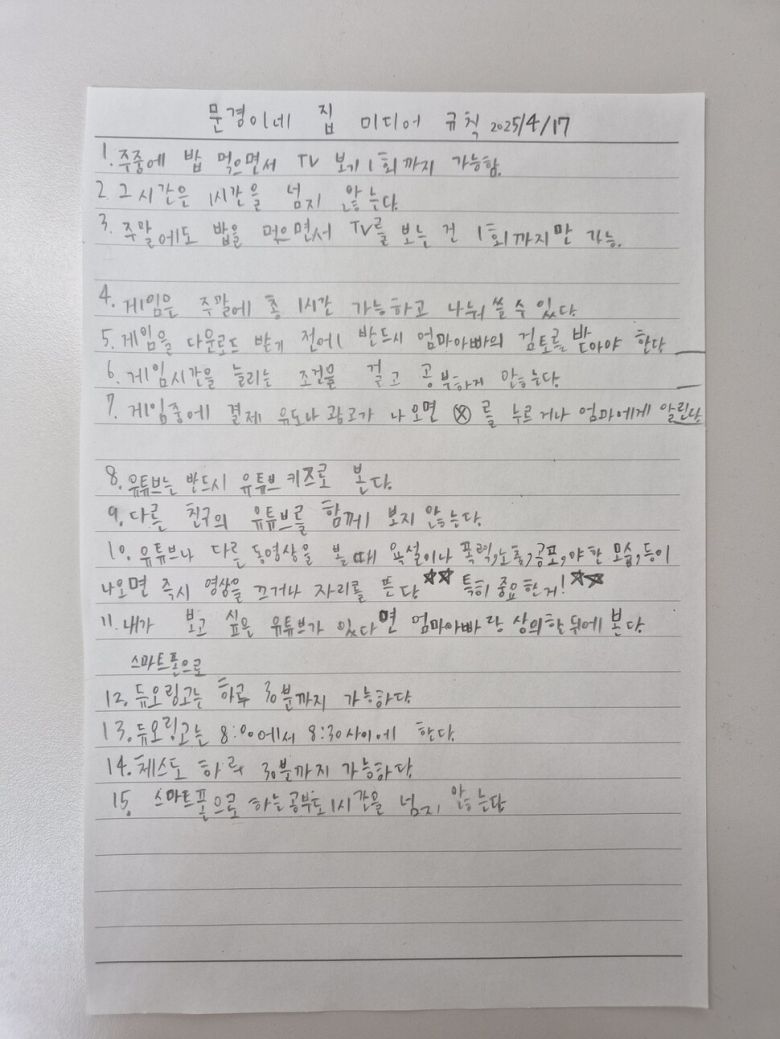 문경이네 집 미디어 규칙 2025/4/17
1. 주중에 밥 먹으면서 TV 보기 1회까지 가능함.
2 그 시간은 1시간을 넘지 않는다.
3. 주말에도 밥을 먹으면서 TV를 보는 건 1회까지만 가능.
4. 게임은 주말에 총 1시간 가능하고 나눠 쓸 수 있다
5. 게임을 다운로드 받기 전에 반드시 엄마아빠의 검토를 받아야 한다
6. 게임시간을 늘리는 조건을 걸고 공부하지 않는다.
7. 게임중에 결제 유도나 광고가 나오면 ⓧ를 누르거나 엄마에게 알린다
8. 유튜브는 반드시 유튜브 키즈로 본다.
9. 다른 친구의 유튜브를 함께 보지 않는다.
10. 유튜브나 다른 동영상을 볼 때 욕설이나 폭력,노출,공포,야한 모습,등이
나오면 즉시 영상을 끄거나 자리를 뜬다 ☆☆ 특히 중요한거! ☆☆
11. 내가 보고 싶은 유튜브가 있다면 엄마아빠랑 상의한 뒤에 본다.
스마트폰으로
12. 듀오링고는 하루 30분까지 가능하다.
13. 듀오링고는 8:00에서 8:30사이에 한다.
14. 체스도 하루 30분까지 가능하다.
15. 스마트폰으로 하는 공부도 1시간을 넘지 않는다